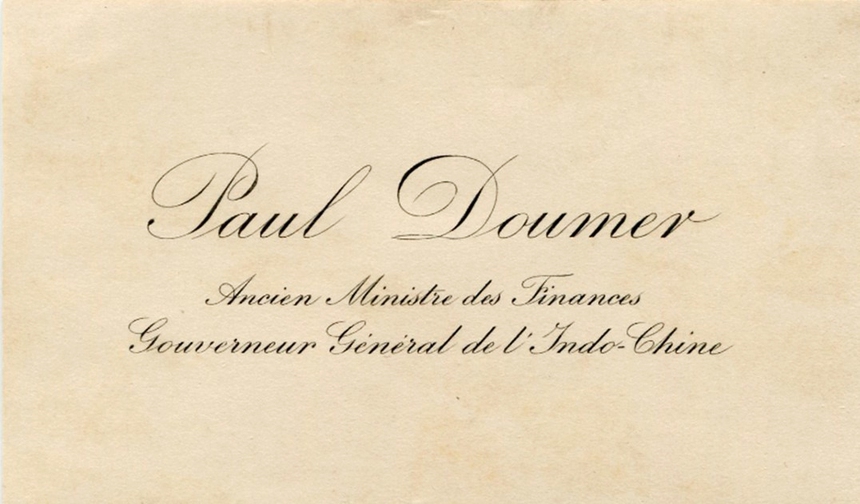 Paul Doumer
Ancien Ministre des Finances
Gouverneur Général de l'Indo-Chine